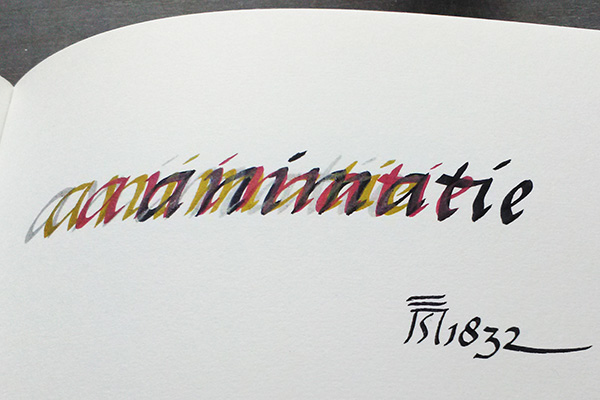 animatie
1832